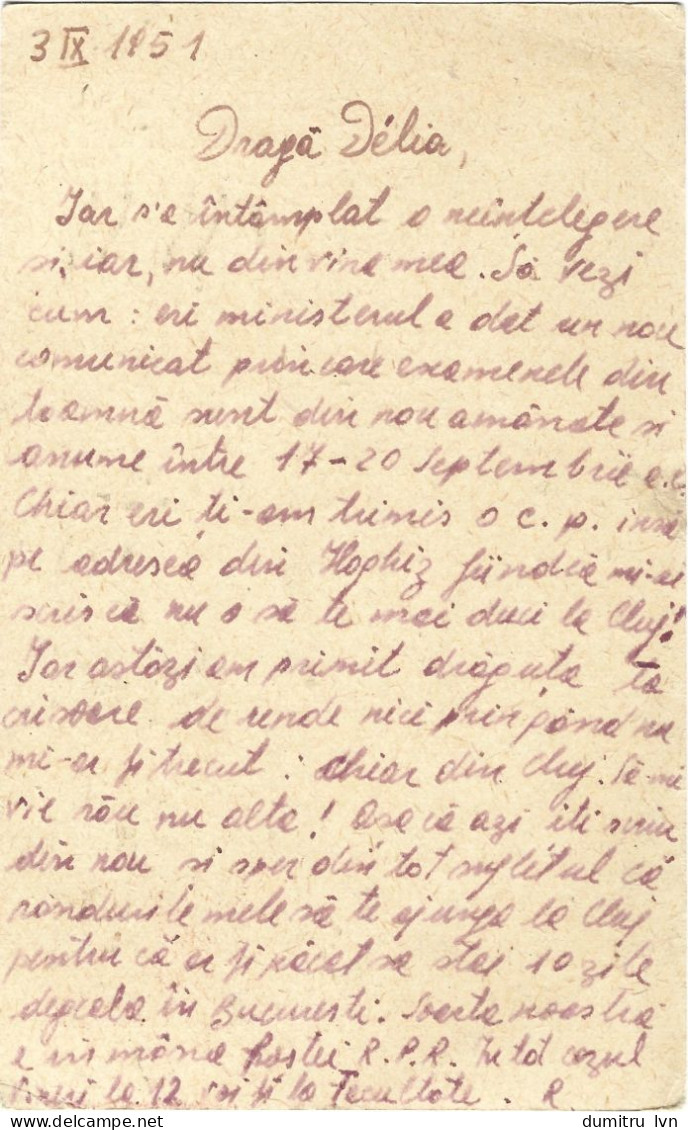 3 IX 1951
Dragă Délia,
Iar s'a întâmplat o neîntelegere
si, iar, nu din vina mea. Să vezi
cum: eri ministerul a dat un nou
comunicat prin care examenele din
toamnă sunt din nou amânate si
anume între 17-20 Septembrie a.c.
Chiar eri ti-am trimis o c. p. insă
pe adresea din Hoghiz fiindcă mi-ai
scris că nu o să te mai duci la Cluj!
Iar astăzi am primit drăguta ta
crisoare de unde nici prin gând nu
mi-ar fi trecut: chiar din Cluj. Să-mi
vie rău nu alta! Asa că azi iti scriu
din nou si sper din tot sufletul că
randurile mele să te ajunga la Cluj
pentru că ar fi păcat sa stai 10 zile
degeaba în Bucuresti. Soarta noastră
e in mâna Postei R.P.R. In tot cazul
la 12 voi fi la Facultate. R
dumitru lvn